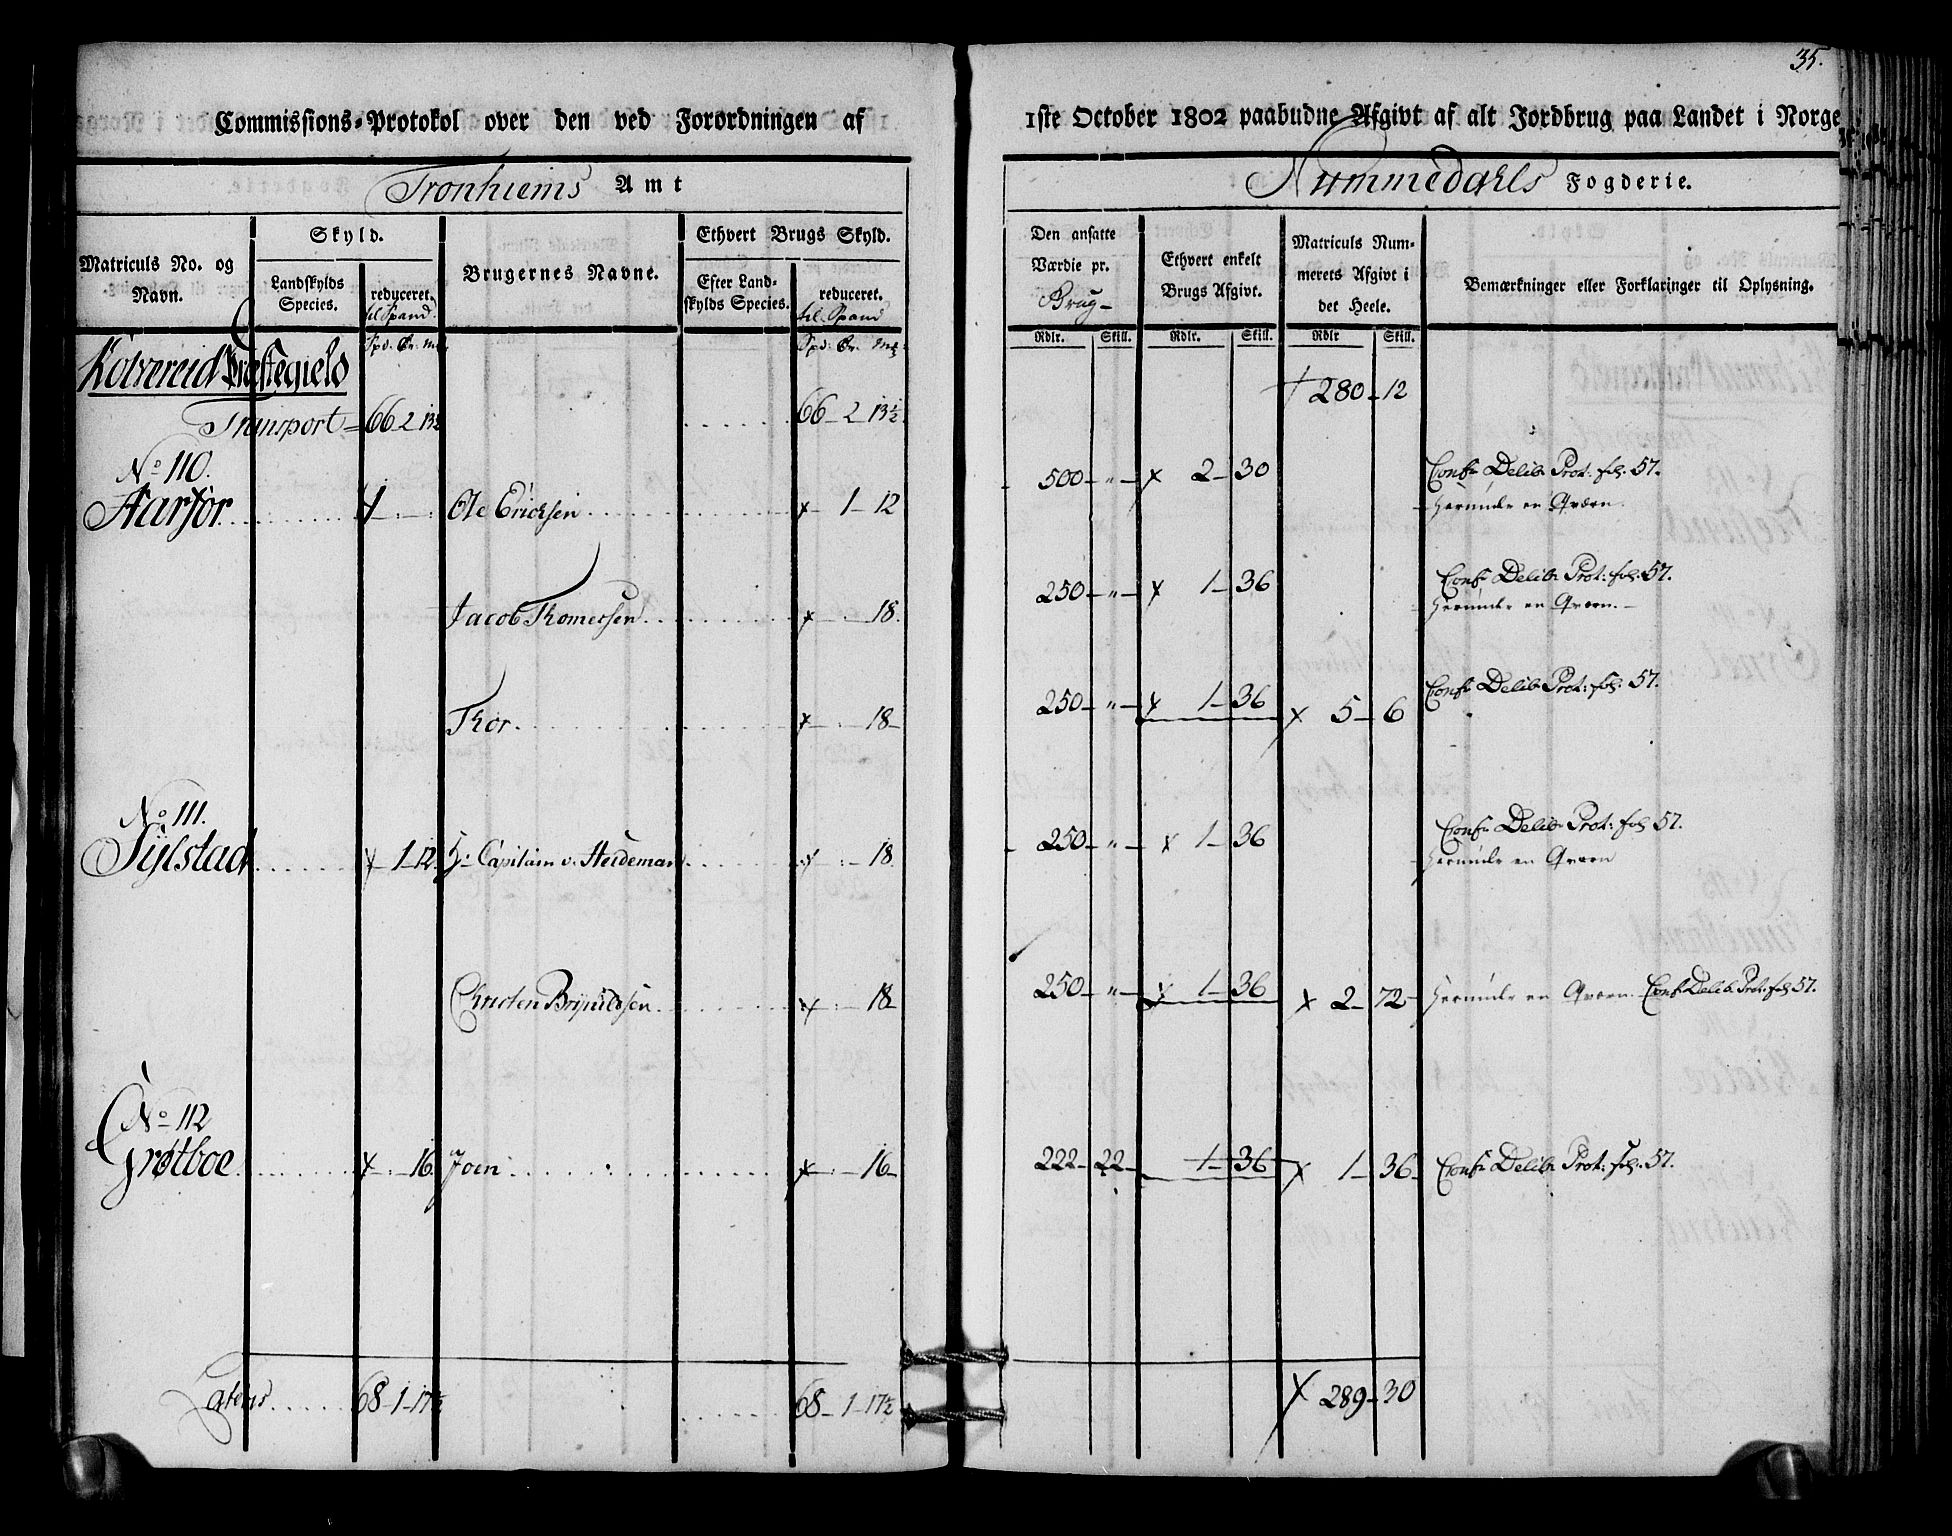 35.
Commissions-Protokol over den ved Forordningen af 1ste October 1802 paabudne Afgivt af alt Jordbrug paa Landet i Norge
Tronhiems Amt
Nummedahls Fogderie.
Matriculs No. og Navn.
Skyld.
Landskylds Species.
reduceret.
til Spand
Brugernes Navne.
Ethvert Brugs Skyld.
Efter Landskylds Species.
reduceret.
til Spand
Den ansatte Værdie pr.
Brug-
Ethvert enkelt Brugs Afgivt.
Matriculs Nummerets Afgivt i det Heele.
Bemærkninger eller Forklaringer til Oplysning.
Rdlr. Skill. Rdlr. Skill. Rdlr Skill.
Kolvereid Præstegield
Transport 66 2 13½ 66 2 13½ 280 12
No 110.
Aarfor 1 Ole Ericksen 1 12 500 „ 2 30 Conf. Delib. Prot. fol. 57.
herunder en Qværn.
Jacob Thomessen 18. 250 „ 1 36 Conf. Delib. Prot: fol. 57.
herunder en Qværn.
Thor 18 250 „ 1 36 5 6 Conf. Delib. Prot: fol. 57.
No 111.
Sylstad 1 12 H: Capitain v. Heideman 18 250 „ 1 36 Conf. Delib. Prot: fol 57.
herunder en Qværn
Christen Brynildsen 18 250 „ 1 36 2 72 herunder en Qværn. Conf. Delib. Prot. fol 57.
No 112
Grøtboe 16 Joen 16 222 22 1 36 1 36 Conf. Delib. Prot: fol. 57.
Latens 68 1 17½ 68 1 17½ 289 30